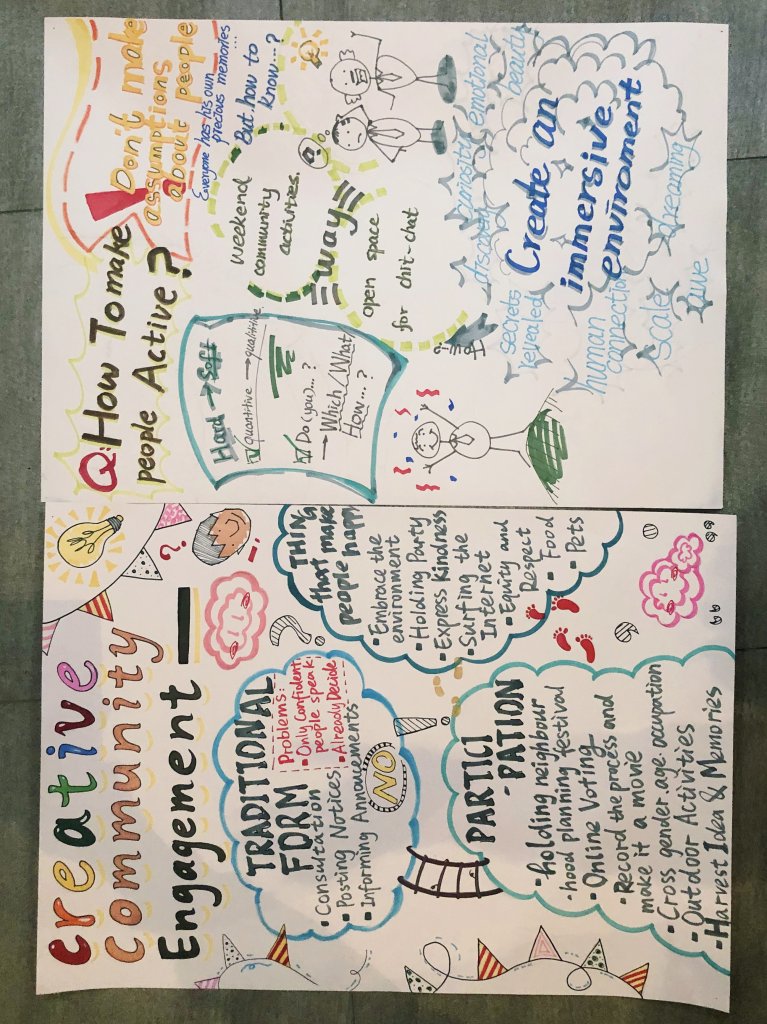 creative
community
Engagement
TRADITIONAL
FORM
Problems:
• Only Confident
people speak
• Already Decide
• Consultation
• Posting Notices
• Informing Announcements
NO!
THING
that make
people happy
• Embrace the
environment
• Holding Party
• Express Kindness
• Surfing the
Internet
• Equity and
Respect
• Food
• Pets
PARTICI
-PATION
• holding neighbour
-hood planning festival
• Online Voting
• Record the process and
make it a movie
• Cross gender.age.occupation
• Outdoor Activities
• Harvest Idea & Memories
Q: How To make
people Active?
Don't make
assumptions
about people
Everyone has his own
precious memories...
But how to
know...?
Hard → Soft
Quantitive → qualitive
Do (you)...?
→ Which/What
How...?
weekend
community
activities.
way
open space
for chit-chat
Create an
immersive
enviroment
emotional
beauty
curiosity
discovery
secrets
revealed
human
connection
scale
live
dreaming